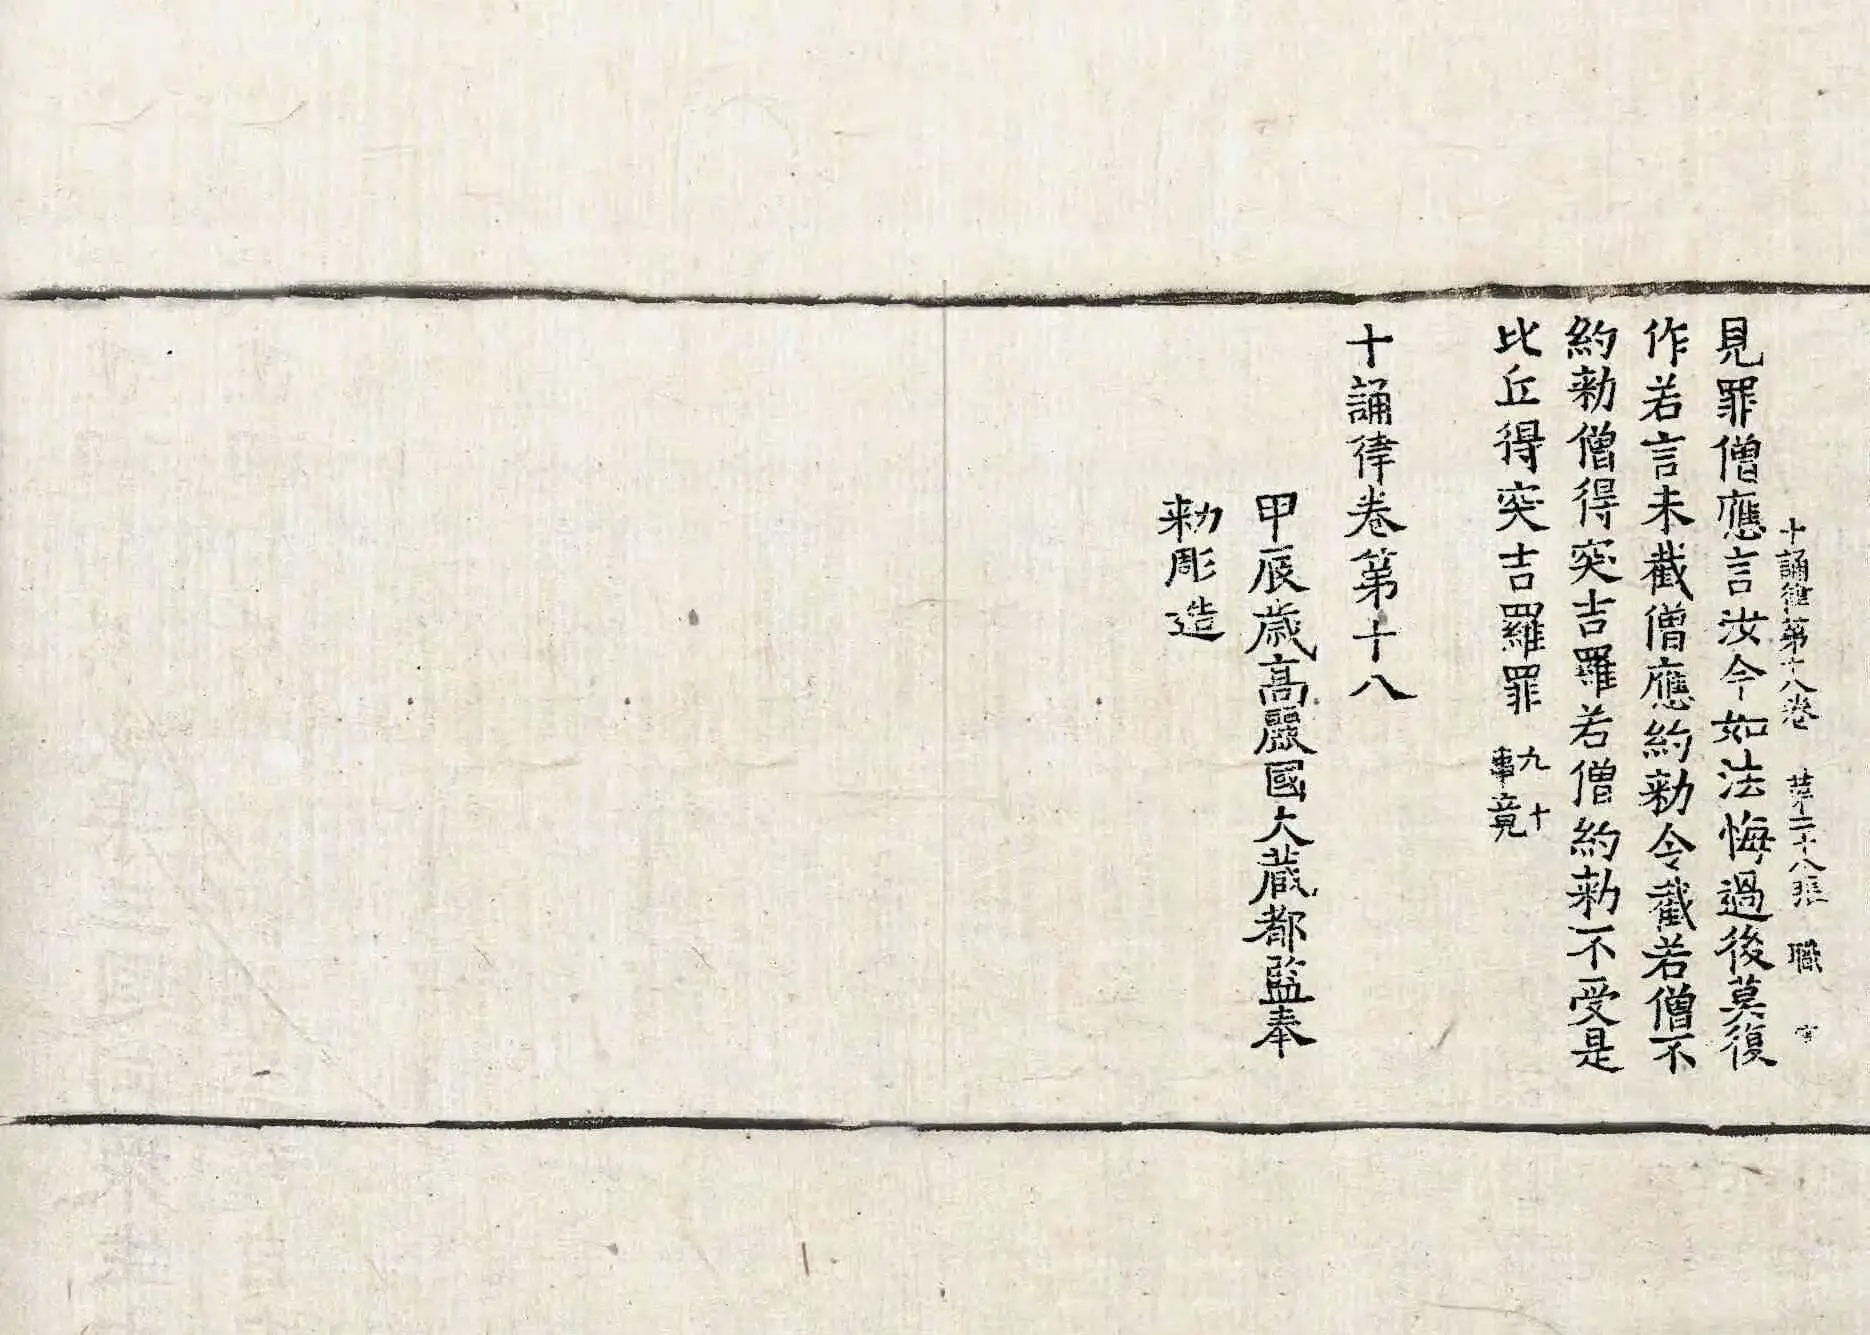 十誦律第十八卷 第二十八張 職
見罪僧應言汝今如法悔過後莫復
作若言未截僧應約勑令截若僧不
約勑僧得突吉羅若僧約勑不受是
比丘得突吉羅罪 九十事竟
十誦律卷第十八
甲辰歲高麗國大藏都監奉
勑彫造